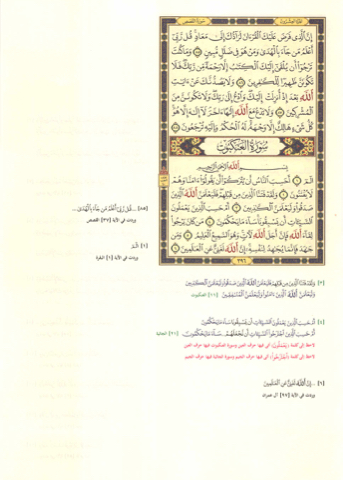 سورة القصص
إِنَّ ٱلَّذِى فَرَضَ عَلَيْكَ ٱلْقُرْءَانَ لَرَآدُّكَ إِلَىٰ مَعَادٍ قُل رَّبِّىٓ
أَعْلَمُ مَن جَآءَ بِٱلْهُدَىٰ وَمَنْ هُوَ فِى ضَلَٰلٍ مُّبِينٍ ۝ وَمَا كُنتَ
تَرْجُوٓا۟ أَن يُلْقَىٰٓ إِلَيْكَ ٱلْكِتَٰبُ إِلَّا رَحْمَةً مِّن رَّبِّكَ فَلَا
تَكُونَنَّ ظَهِيرًا لِّلْكَٰفِرِينَ ۝ وَلَا يَصُدُّنَّكَ عَنْ ءَايَٰتِ
ٱللَّهِ بَعْدَ إِذْ أُنزِلَتْ إِلَيْكَ وَٱدْعُ إِلَىٰ رَبِّكَ وَلَا تَكُونَنَّ مِنَ
ٱلْمُشْرِكِينَ ۝ وَلَا تَدْعُ مَعَ ٱللَّهِ إِلَٰهًا ءَاخَرَ لَآ إِلَٰهَ إِلَّا هُوَ
كُلُّ شَىْءٍ هَالِكٌ إِلَّا وَجْهَهُۥ لَهُ ٱلْحُكْمُ وَإِلَيْهِ تُرْجَعُونَ ۝
سُورَةُ الْعَنكَبُوتِ
بِسْمِ ٱللَّهِ ٱلرَّحْمَٰنِ ٱلرَّحِيمِ
الٓمٓ ۝ أَحَسِبَ ٱلنَّاسُ أَن يُتْرَكُوٓا۟ أَن يَقُولُوٓا۟ ءَامَنَّا وَهُمْ
لَا يُفْتَنُونَ ۝ وَلَقَدْ فَتَنَّا ٱلَّذِينَ مِن قَبْلِهِمْ فَلَيَعْلَمَنَّ ٱللَّهُ ٱلَّذِينَ
صَدَقُوا۟ وَلَيَعْلَمَنَّ ٱلْكَٰذِبِينَ ۝ أَمْ حَسِبَ ٱلَّذِينَ يَعْمَلُونَ
ٱلسَّيِّـَٔاتِ أَن يَسْبِقُونَا سَآءَ مَا يَحْكُمُونَ ۝ مَن كَانَ يَرْجُوا۟
لِقَآءَ ٱللَّهِ فَإِنَّ أَجَلَ ٱللَّهِ لَءَاتٍ وَهُوَ ٱلسَّمِيعُ ٱلْعَلِيمُ ۝ وَمَن
جَٰهَدَ فَإِنَّمَا يُجَٰهِدُ لِنَفْسِهِۦٓ إِنَّ ٱللَّهَ لَغَنِىٌّ عَنِ ٱلْعَٰلَمِينَ ۝
٣٩٦
[٨٥] ... قُل رَّبِّىٓ أَعْلَمُ مَن جَآءَ بِٱلْهُدَىٰ...
وردت في الآية [٣٧] القصص
[١] الٓمٓ
وردت في الآية [١] البقرة
[٣] وَلَقَدْ فَتَنَّا ٱلَّذِينَ مِن قَبْلِهِمْ فَلَيَعْلَمَنَّ ٱللَّهُ ٱلَّذِينَ صَدَقُوا۟ وَلَيَعْلَمَنَّ ٱلْكَٰذِبِينَ
وَلَيَعْلَمَنَّ ٱللَّهُ ٱلَّذِينَ ءَامَنُوا۟ وَلَيَعْلَمَنَّ ٱلْمُنَٰفِقِينَ [١١] العنكبوت
[٤] أَمْ حَسِبَ ٱلَّذِينَ يَعْمَلُونَ ٱلسَّيِّـَٔاتِ أَن يَسْبِقُونَا سَآءَ مَا يَحْكُمُونَ
أَمْ حَسِبَ ٱلَّذِينَ ٱجْتَرَحُوا۟ ٱلسَّيِّـَٔاتِ أَن نَّجْعَلَهُمْ... سَآءَ مَا يَحْكُمُونَ [٢١] الجاثية
لاحظ إلى كلمة «يعملون» التي فيها حرف العين وسورة العنكبوت فيها حرف العين
لاحظ إلى كلمة «اجترحوا» التي فيها حرف الجيم وسورة الجاثية فيها حرف الجيم
[٦] ... إِنَّ ٱللَّهَ لَغَنِىٌّ عَنِ ٱلْعَٰلَمِينَ
وردت في الآية [٩٧] آل عمران